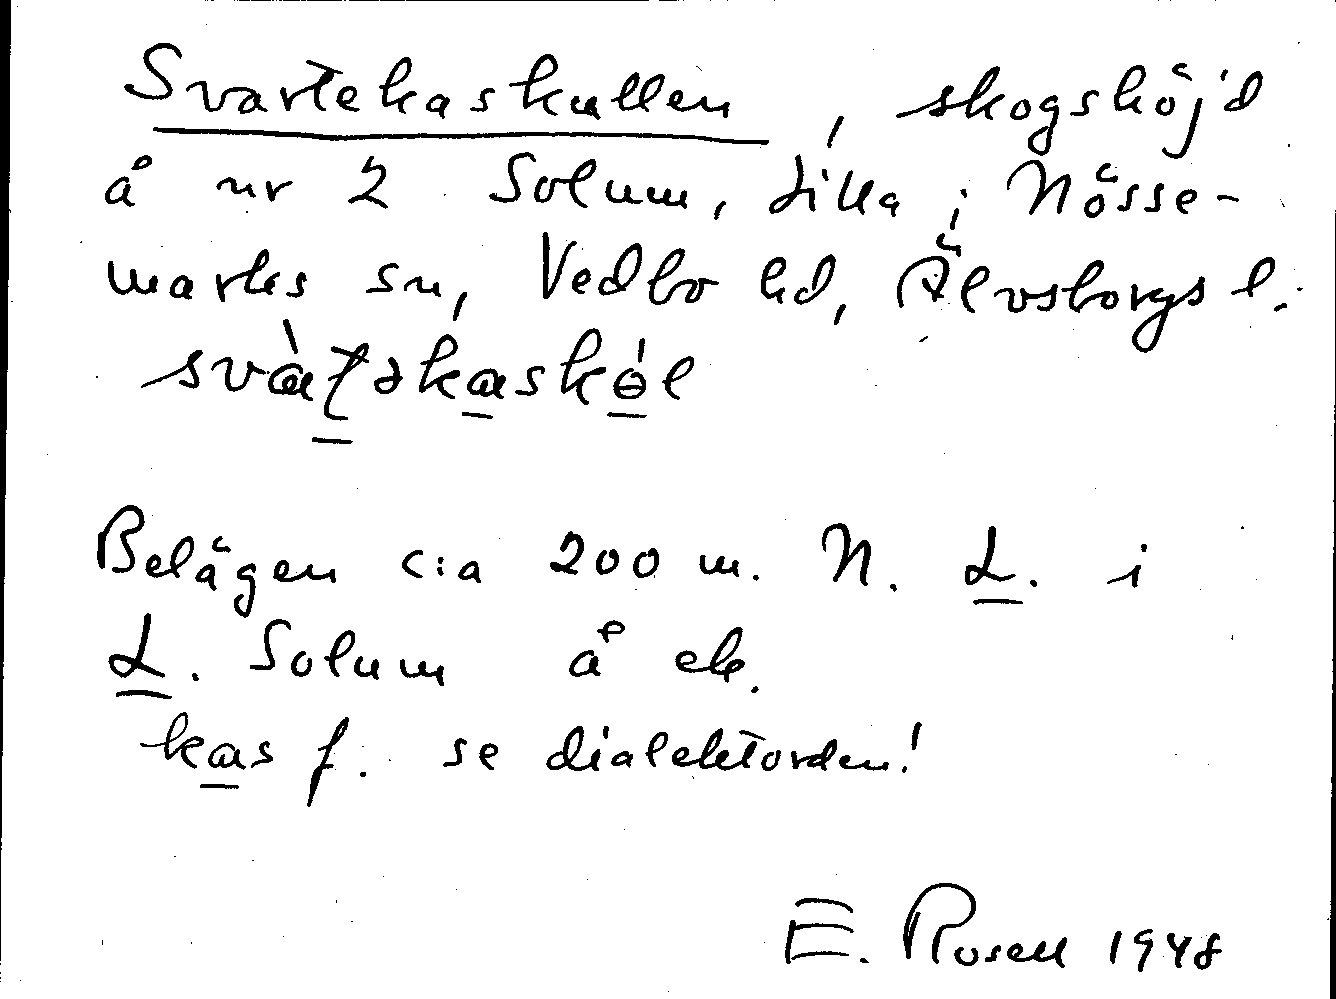 Svartekaskullen, skogshöjd
å nr 2 Solum, Lilla i Nösse-
marks sn, Vedbo hd, Älvsborgs l.
Belägen c:a 200 m. N. L. i
L. Solum å ek.
kas f. se dialektorden!
E. Rosell 1948